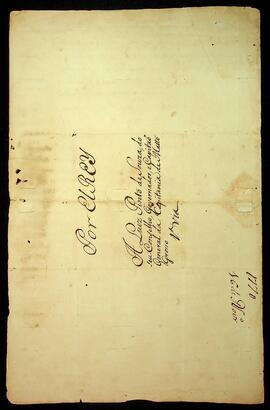 Por ElREY
A Luiz Pinto de Souza, do
seu Conselho Governador, e Capitaõ
General da Capitania de Matto
Groso
1ª Via
1770